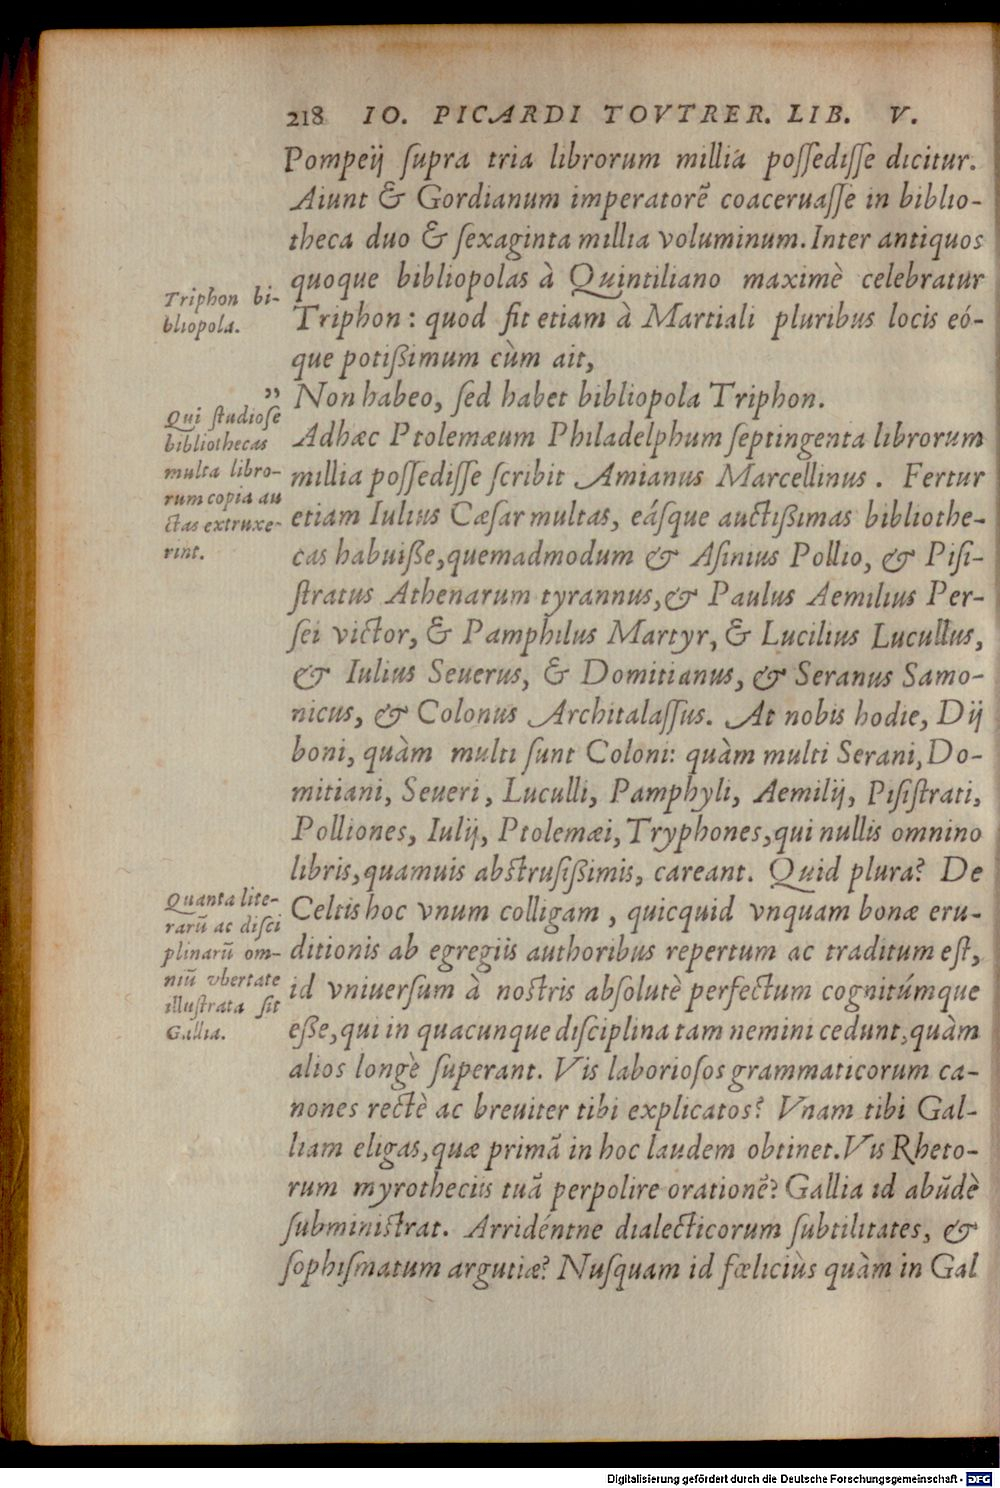 218 IO. PICARDI TOVTRER. LIB. V.
Pompeij ſupra tria librorum millia poſſediſſe dicitur.
Aiunt & Gordianum imperatorē coaceruaſſe in biblio-
theca duo & ſexaginta millia voluminum. Inter antiquos
quoque bibliopolas à Quintiliano maximè celebratur
Triphon : quod fit etiam à Martiali pluribus locis eó-
que potißimum cùm ait,
Non habeo, ſed habet bibliopola Triphon.
Adhæc Ptolemæum Philadelphum ſeptingenta librorum
millia poſſediſſe ſcribit Amianus Marcellinus . Fertur
etiam Iulius Cæſar multas, eáſque auctißimas bibliothe-
cas habuiße, quemadmodum & Aſinius Pollio, & Piſi-
ſtratus Athenarum tyrannus, & Paulus Aemilius Per-
ſei victor, & Pamphilus Martyr, & Lucilius Lucullus,
& Iulius Seuerus, & Domitianus, & Seranus Samo-
nicus, & Colonus Architalaſſus. At nobis hodie, Dij
boni, quàm multi ſunt Coloni: quàm multi Serani, Do-
mitiani, Seueri, Luculli, Pamphyli, Aemilij, Piſiſtrati,
Polliones, Iulij, Ptolemæi, Tryphones, qui nullis omnino
libris, quamuis abſtruſißimis, careant. Quid plura? De
Celtis hoc vnum colligam , quicquid vnquam bonæ eru-
ditionis ab egregiis authoribus repertum ac traditum eſt,
id vniuerſum à noſtris abſolutè perfectum cognitúmque
eße, qui in quacunque diſciplina tam nemini cedunt, quàm
alios longè ſuperant. Vis laborioſos grammaticorum ca-
nones rectè ac breuiter tibi explicatos? Vnam tibi Gal-
liam eligas, quæ primā in hoc laudem obtinet. Vis Rheto-
rum myrotheciis tuā perpolire orationē? Gallia id abūdè
ſubminiſtrat. Arridéntne dialecticorum ſubtilitates, &
ſophiſmatum argutiæ? Nuſquam id fœliciùs quàm in Gal
Triphon bi-
bliopola.
"
Qui ſtudioſe
bibliothecas
multa libro-
rum copia au
ctas extruxe-
rint.
Quanta lite-
rarū ac diſci
plinarū om-
niū vbertate
illuſtrata ſit
Gallia.
Digitalisierung gefördert durch die Deutsche Forschungsgemeinschaft - DFG